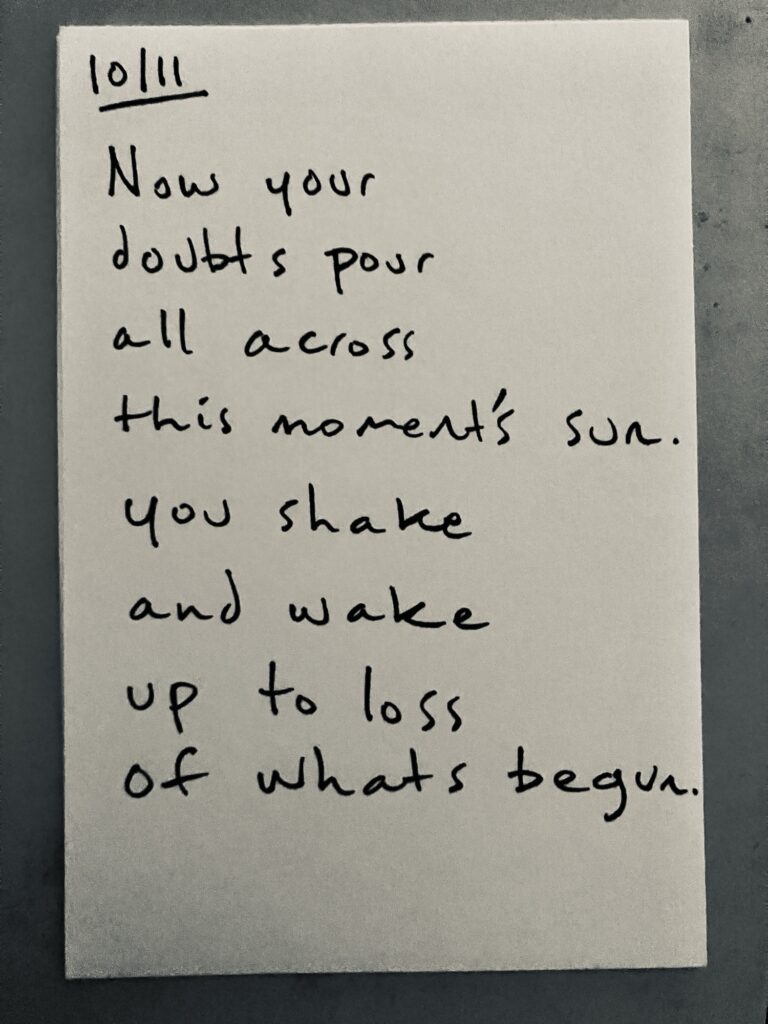 10/11
Now your
doubts pour
all across
this moment's sun.
you shake
and wake
up to loss
of whats begun.